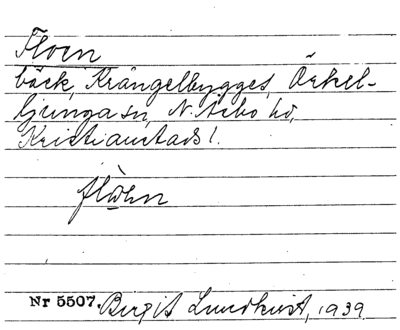 Floen
bäck, Krångelbygget, Örkel-
ljunga sn, N. Åsbo hd,
Kristianstads l.
Nr 5507. Birgit Lundkvist, 1939